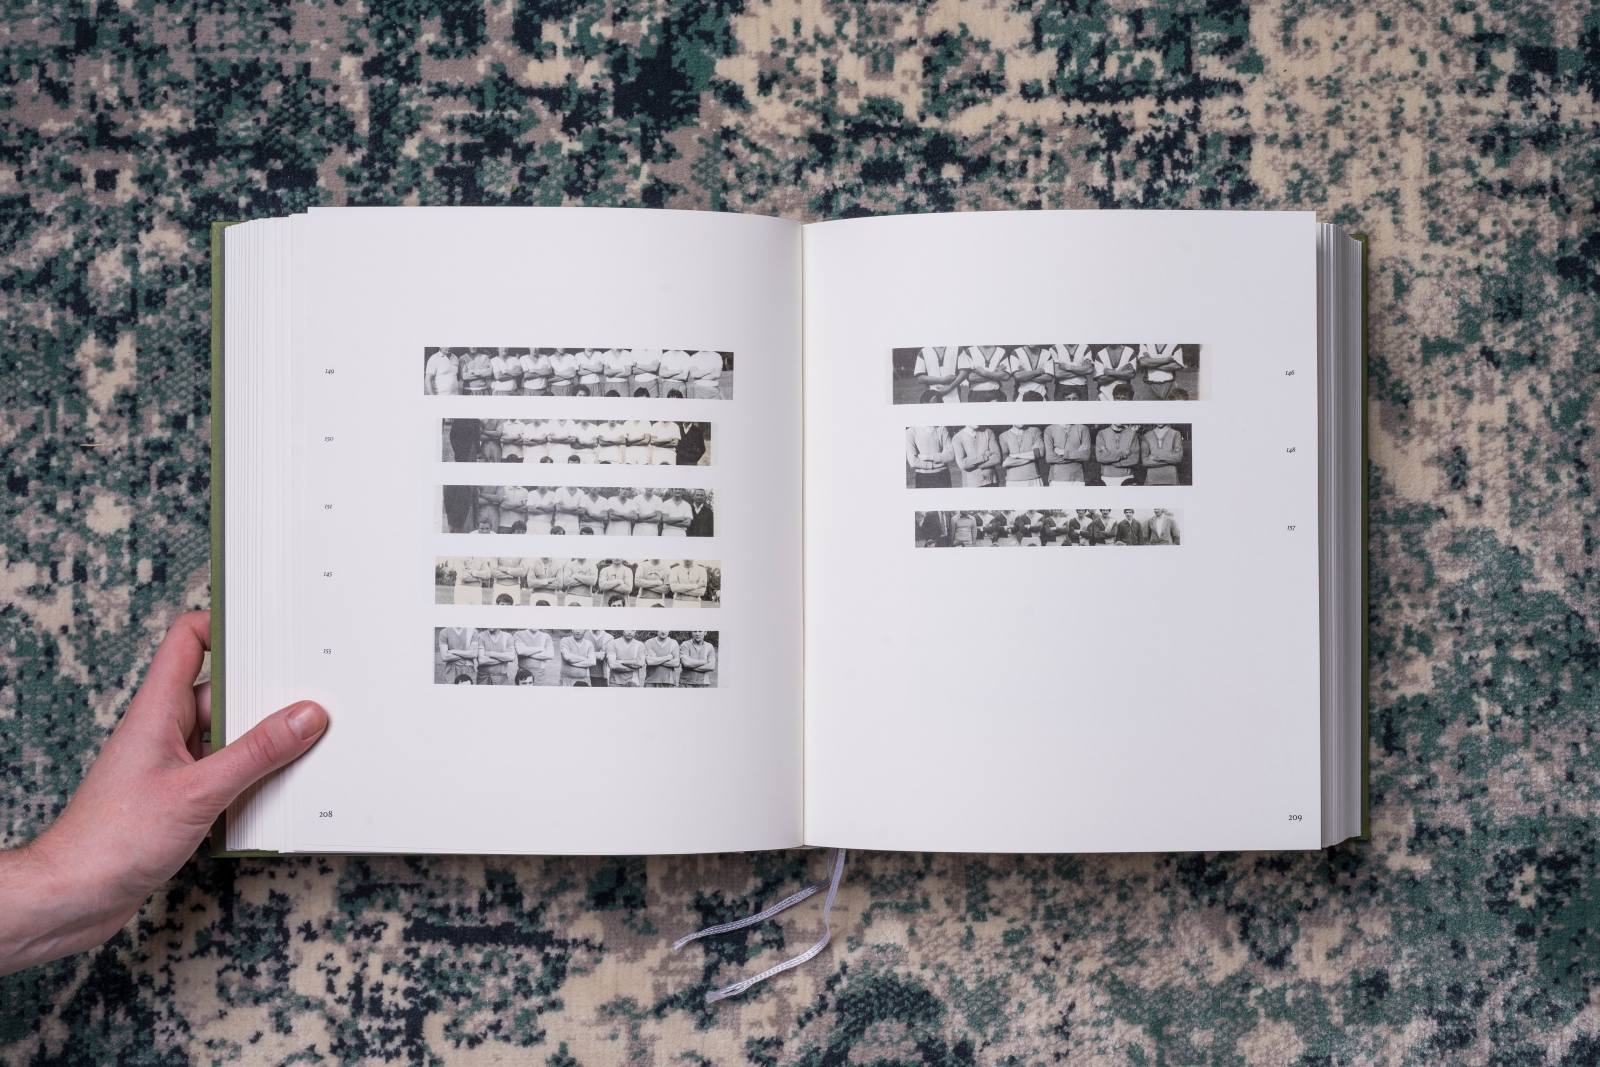 149
150
151
145
155
208
146
148
157
209